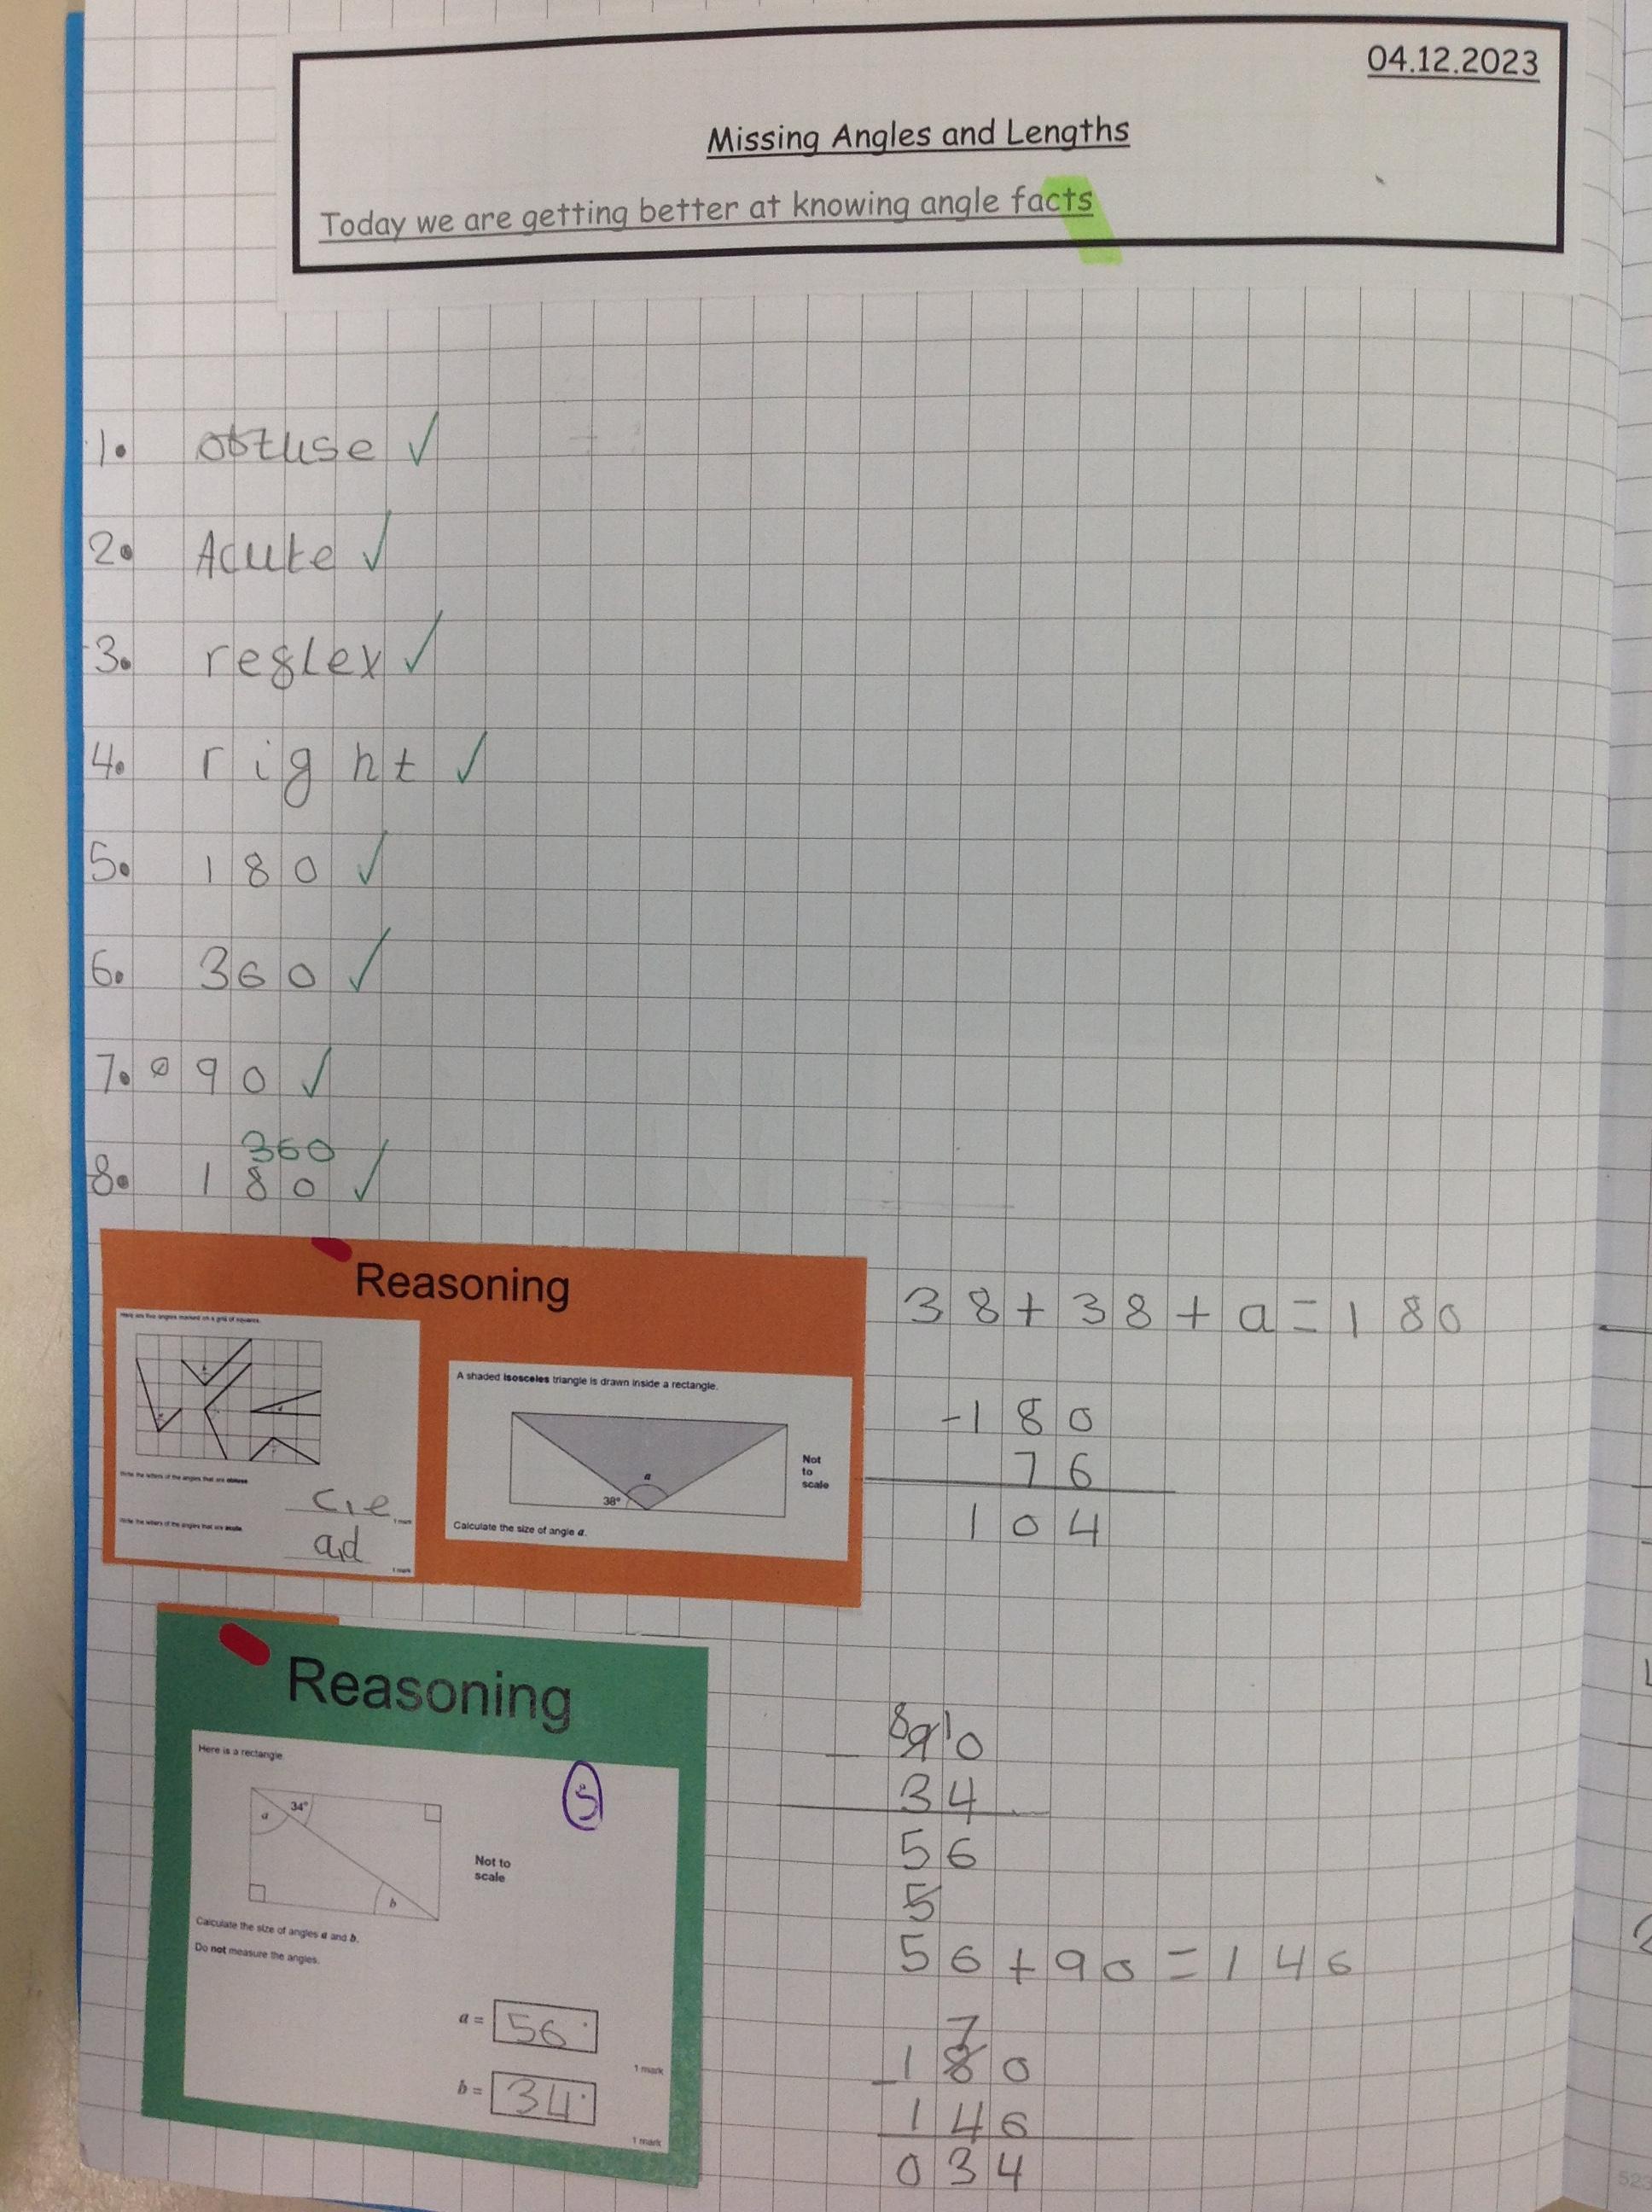 04.12.2023
Missing Angles and Lengths
Today we are getting better at knowing angle facts
1. obtuse ✓
2. Acute ✓
3. reflex ✓
4. right ✓
5. 180 ✓
6. 360 ✓
7. 90 ✓
360
8. 180 ✓
Reasoning
Here are five angles marked on a grid of squares.
Write the letters of the angles that are obtuse.
c, e
1 mark
Write the letters of the angles that are acute.
a, d
1 mark
A shaded isosceles triangle is drawn inside a rectangle.
a
38°
Not
to
scale
Calculate the size of angle a.
38+38+a=180
-180
76
104
Reasoning
Here is a rectangle
S
a
34°
b
Not to
scale
Calculate the size of angles a and b.
Do not measure the angles.
a = 56°
1 mark
b = 34°
1 mark
8 1
- 90
34
56
5
56+90=146
7
- 180
146
034